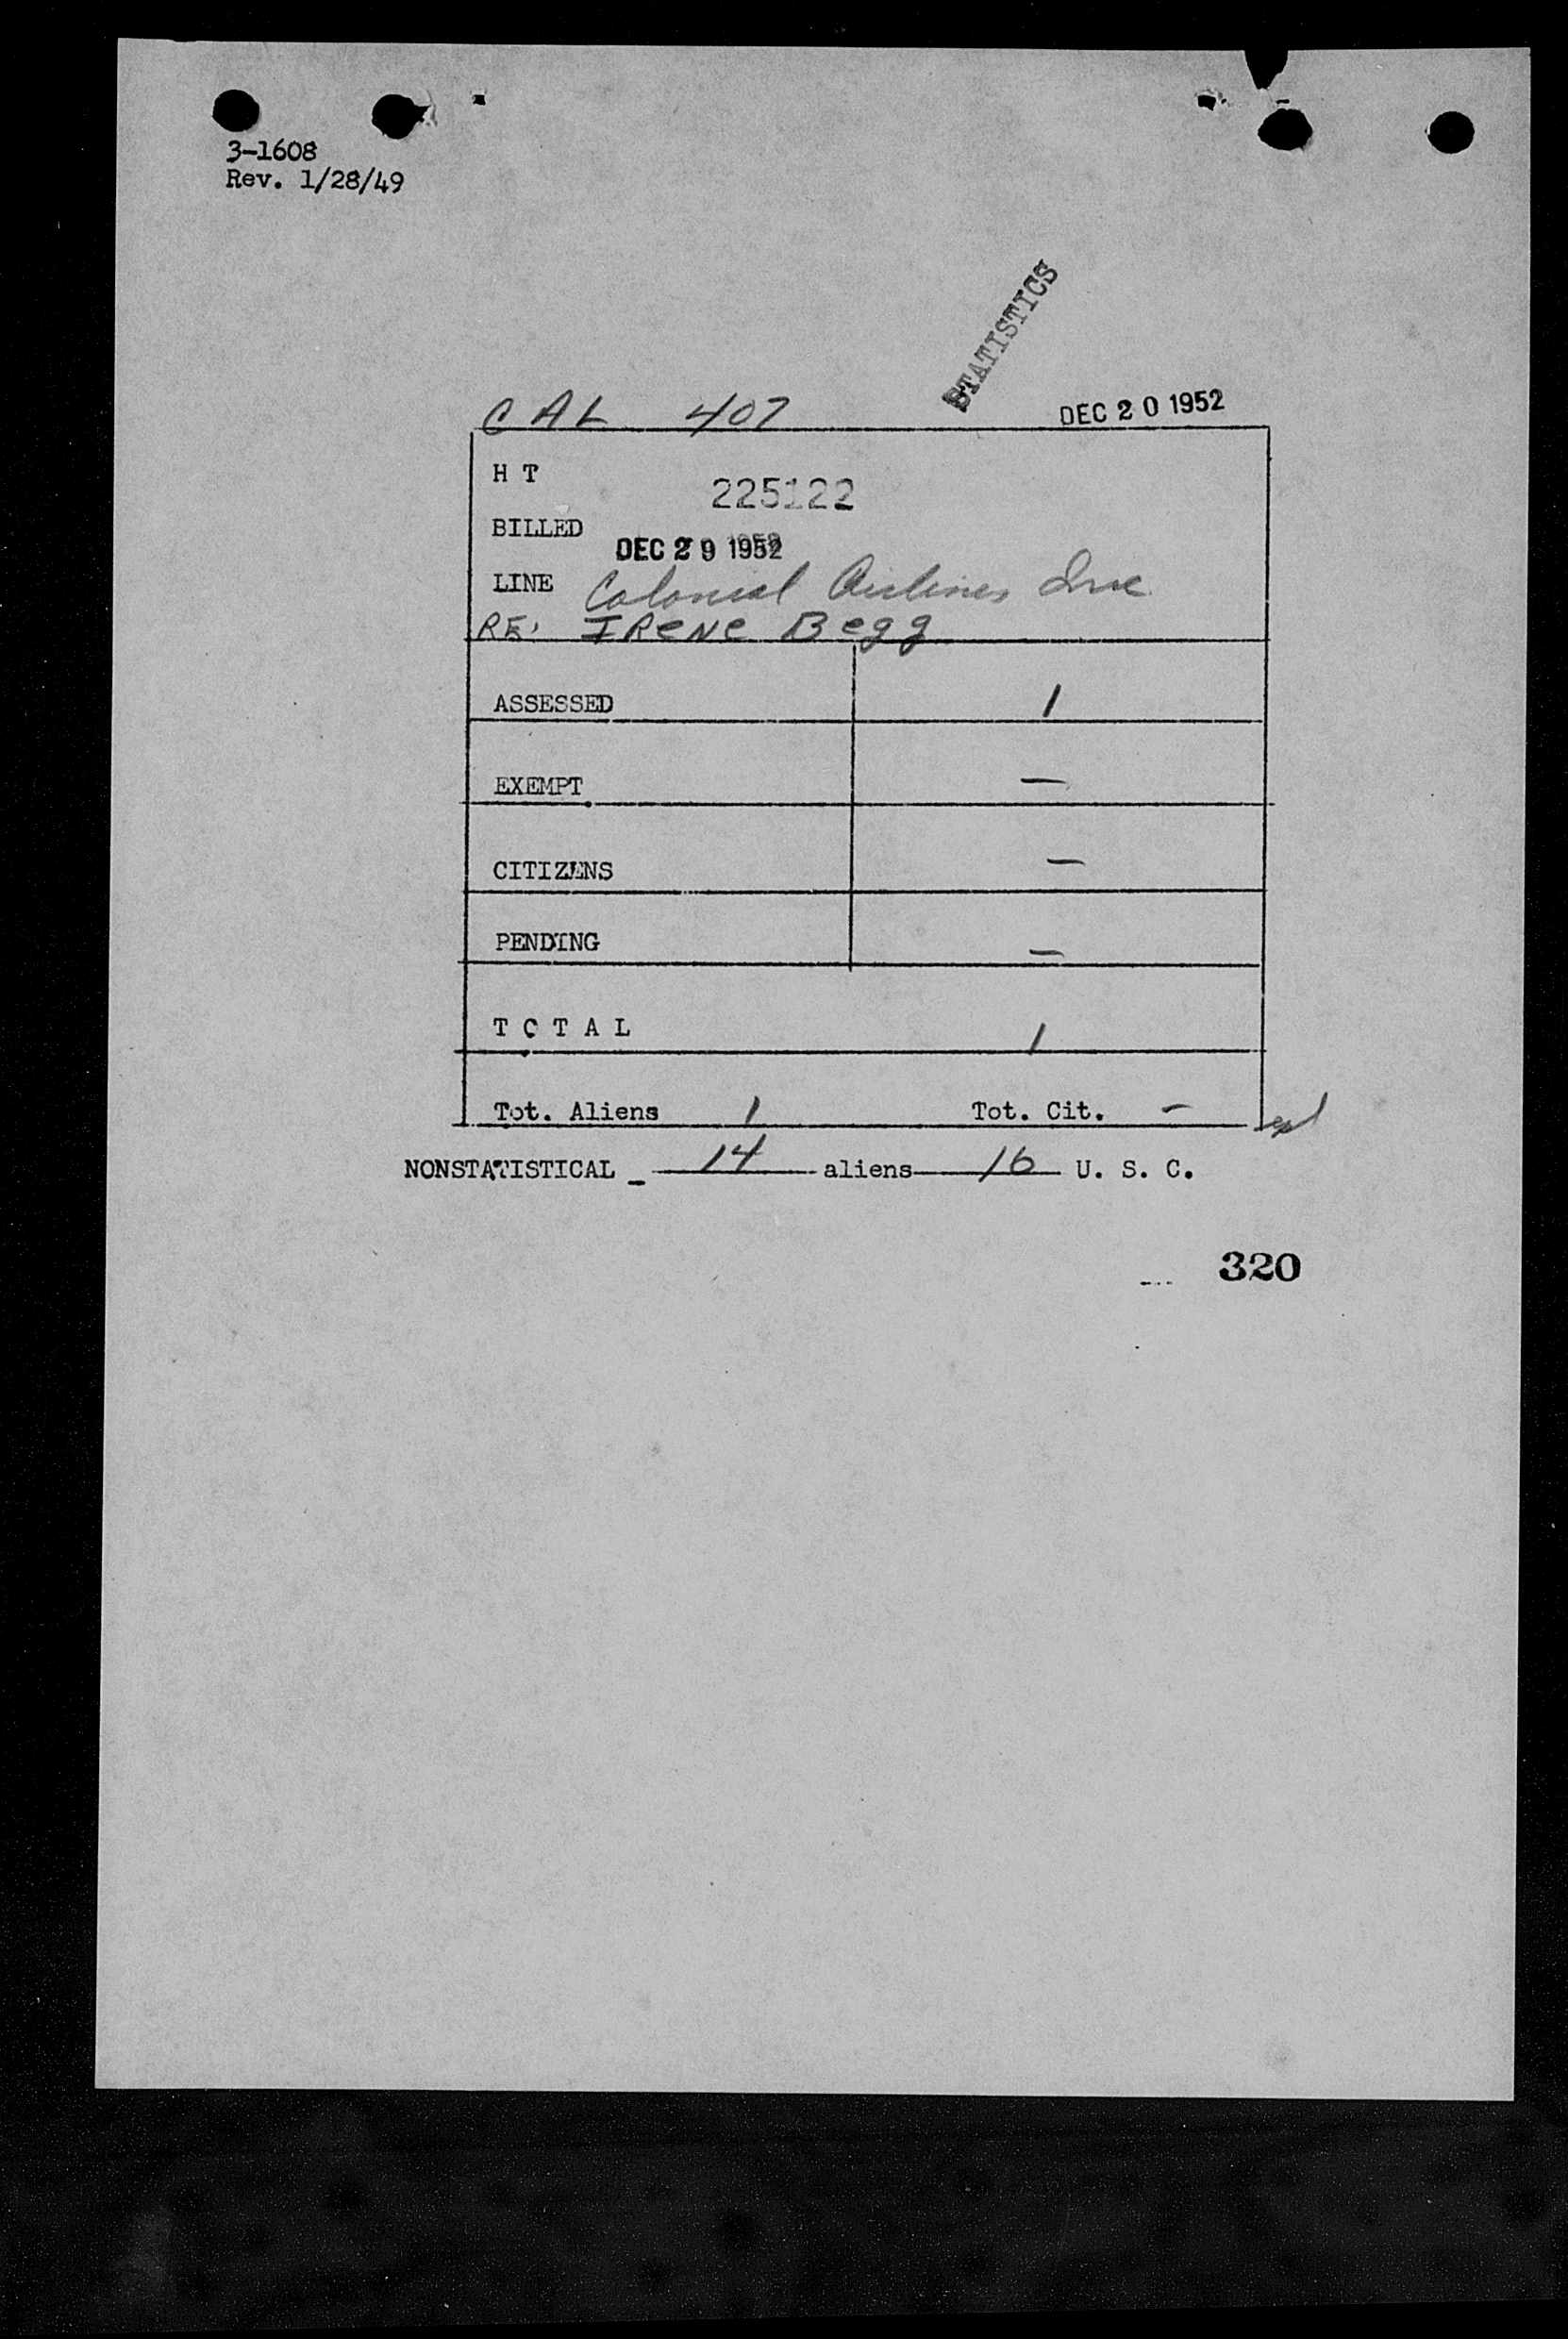 3-1608
Rev. 1/28/49
STATISTICS
CAL 407 DEC 20 1952
H T 225122
BILLED DEC 29 1952
LINE Colonial Airlines Inc
RE: IReNe Begg
ASSESSED 1
EXEMPT —
CITIZENS —
PENDING —
TOTAL 1
Tot. Aliens 1 Tot. Cit. -
NONSTATISTICAL - 14 aliens 16 U. S. C.
320